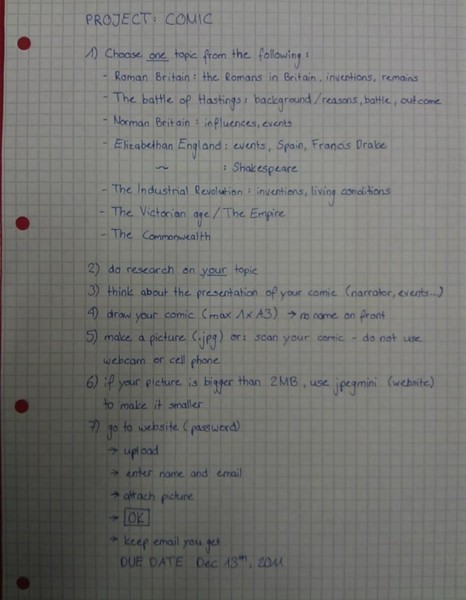 PROJECT: COMIC
1) Choose one topic from the following:
- Roman Britain: the Romans in Britain, inventions, remains
- The battle of Hastings: background/reasons, battle, outcome
- Norman Britain: influences, events
- Elizabethan England: events, Spain, Francis Drake
~ : Shakespeare
- The Industrial Revolution: inventions, living conditions
- The Victorian age / The Empire
- The Commonwealth
2) do research on your topic
3) think about the presentation of your comic (narrator, events...)
4) draw your comic (max 1x A3) → no name on front
5) make a picture (.jpg) or: scan your comic - do not use
webcam or cell phone
6) if your picture is bigger than 2MB, use jpegmini (website)
to make it smaller
7) go to website (password)
→ upload
→ enter name and email
→ attach picture
→ OK
→ keep email you get
DUE DATE Dec 13th, 2011